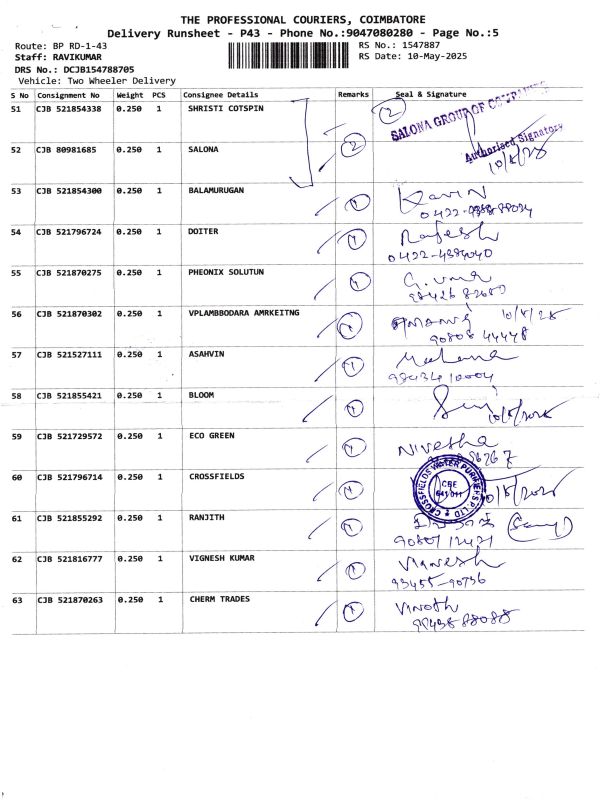 THE PROFESSIONAL COURIERS, COIMBATORE
Delivery Runsheet - P43 - Phone No.:9047080280 - Page No.:5
Route: BP RD-1-43
RS No.: 1547887
Staff: RAVIKUMAR
RS Date: 10-May-2025
DRS No.: DCJB154788705
Vehicle: Two Wheeler Delivery
S No Consignment No Weight PCS Consignee Details Remarks Seal & Signature
51 CJB 521854338 0.250 1 SHRISTI COTSPIN 2 SALONA GROUP OF COMPANIES
Authorised Signatory
52 CJB 80981685 0.250 1 SALONA 2 10/5/25
53 CJB 521854300 0.250 1 BALAMURUGAN 1 Kavin
54 CJB 521796724 0.250 1 DOITER 1 Rajesh
0422-4384040
55 CJB 521870275 0.250 1 PHEONIX SOLUTUN 1
56 CJB 521870302 0.250 1 VPLAMBBODARA AMRKEITNG 1 10/5/25
90808 44448
57 CJB 521527111 0.250 1 ASAHVIN 1
98434 10004
58 CJB 521855421 0.250 1 BLOOM 1 10/5/2025
59 CJB 521729572 0.250 1 ECO GREEN 1 Nivetha
60 CJB 521796714 0.250 1 CROSSFIELDS 1 CROSSFIELDS WATER PURIFIERS P LTD
CBE
641 011
10/5/2025
61 CJB 521855292 0.250 1 RANJITH 1
62 CJB 521816777 0.250 1 VIGNESH KUMAR 1 Vignesh
93455-90736
63 CJB 521870263 0.250 1 CHERM TRADES 1 Vinoth
99438 88088